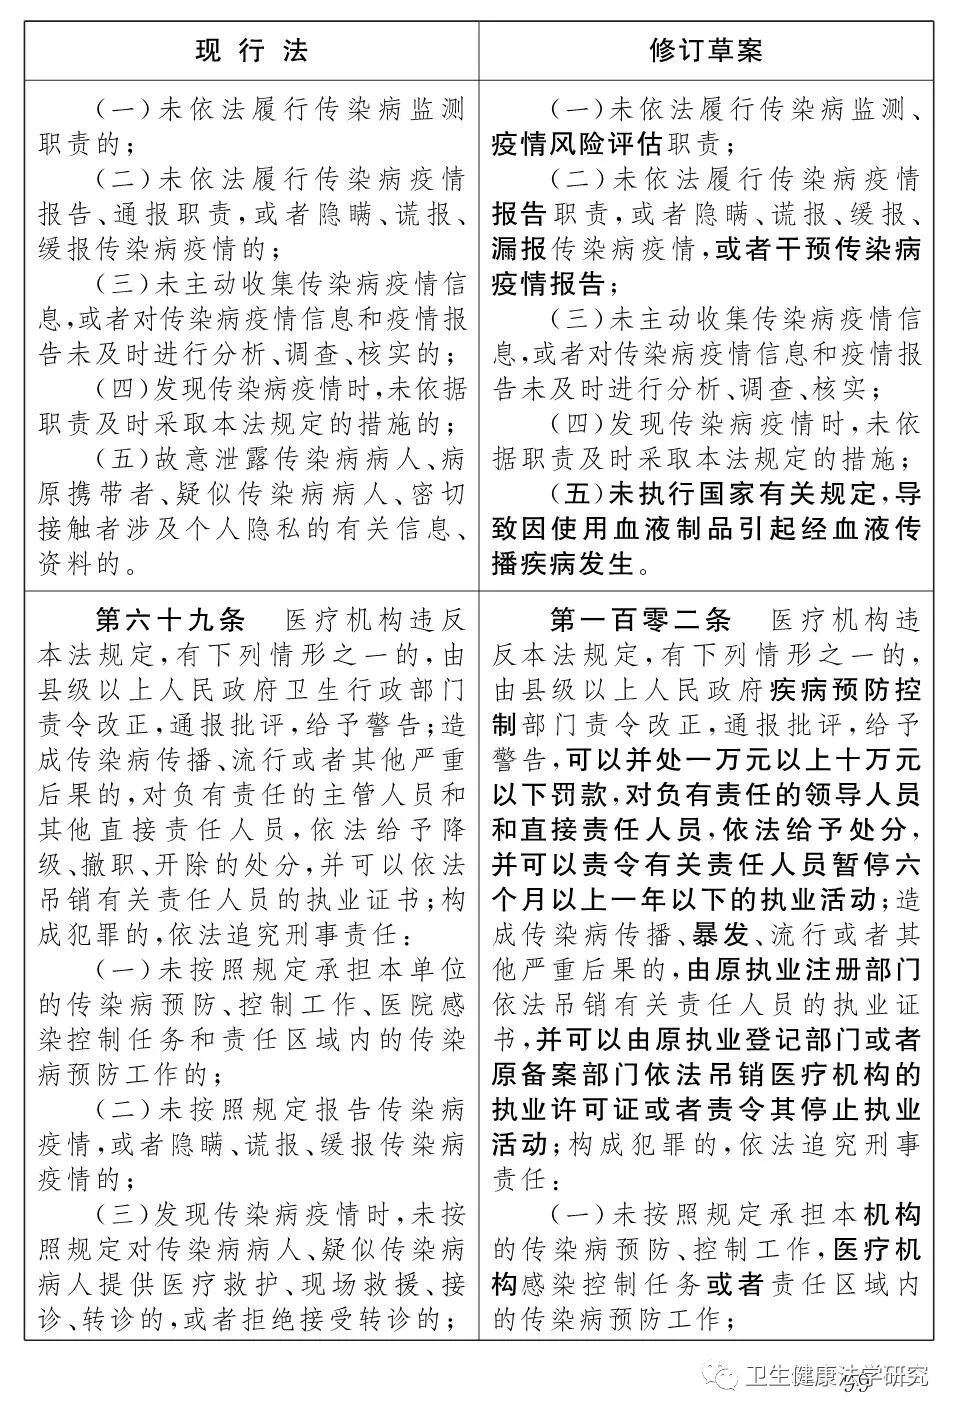 现行法
修订草案
(一)未依法履行传染病监测
职责的;
(二)未依法履行传染病疫情
报告、通报职责,或者隐瞒、谎报、
缓报传染病疫情的;
(三)未主动收集传染病疫情信
息,或者对传染病疫情信息和疫情报
告未及时进行分析、调查、核实的;
(四)发现传染病疫情时,未依据
职责及时采取本法规定的措施的;
(五)故意泄露传染病病人、病
原携带者、疑似传染病病人、密切
接触者涉及个人隐私的有关信息、
资料的。
(一)未依法履行传染病监测、
疫情风险评估职责;
(二)未依法履行传染病疫情
报告职责,或者隐瞒、谎报、缓报、
漏报传染病疫情,或者干预传染病
疫情报告;
(三)未主动收集传染病疫情信
息,或者对传染病疫情信息和疫情报
告未及时进行分析、调查、核实;
(四)发现传染病疫情时,未依
据职责及时采取本法规定的措施;
(五)未执行国家有关规定,导
致因使用血液制品引起经血液传
播疾病发生。
第六十九条 医疗机构违反
本法规定,有下列情形之一的,由
县级以上人民政府卫生行政部门
责令改正,通报批评,给予警告;造
成传染病传播、流行或者其他严重
后果的,对负有责任的主管人员和
其他直接责任人员,依法给予降
级、撤职、开除的处分,并可以依法
吊销有关责任人员的执业证书;构
成犯罪的,依法追究刑事责任:
(一)未按照规定承担本单位
的传染病预防、控制工作、医院感
染控制任务和责任区域内的传染
病预防工作的;
(二)未按照规定报告传染病
疫情,或者隐瞒、谎报、缓报传染病
疫情的;
(三)发现传染病疫情时,未按
照规定对传染病病人、疑似传染病
病人提供医疗救护、现场救援、接
诊、转诊的,或者拒绝接受转诊的;
第一百零二条 医疗机构违
反本法规定,有下列情形之一的,
由县级以上人民政府疾病预防控
制部门责令改正,通报批评,给予
警告,可以并处一万元以上十万元
以下罚款,对负有责任的领导人员
和直接责任人员,依法给予处分,
并可以责令有关责任人员暂停六
个月以上一年以下的执业活动;造
成传染病传播、暴发、流行或者其
他严重后果的,由原执业注册部门
依法吊销有关责任人员的执业证
书,并可以由原执业登记部门或者
原备案部门依法吊销医疗机构的
执业许可证或者责令其停止执业
活动;构成犯罪的,依法追究刑事
责任:
(一)未按照规定承担本机构
的传染病预防、控制工作,医疗机
构感染控制任务或者责任区域内
的传染病预防工作;
卫生健康法学研究
59